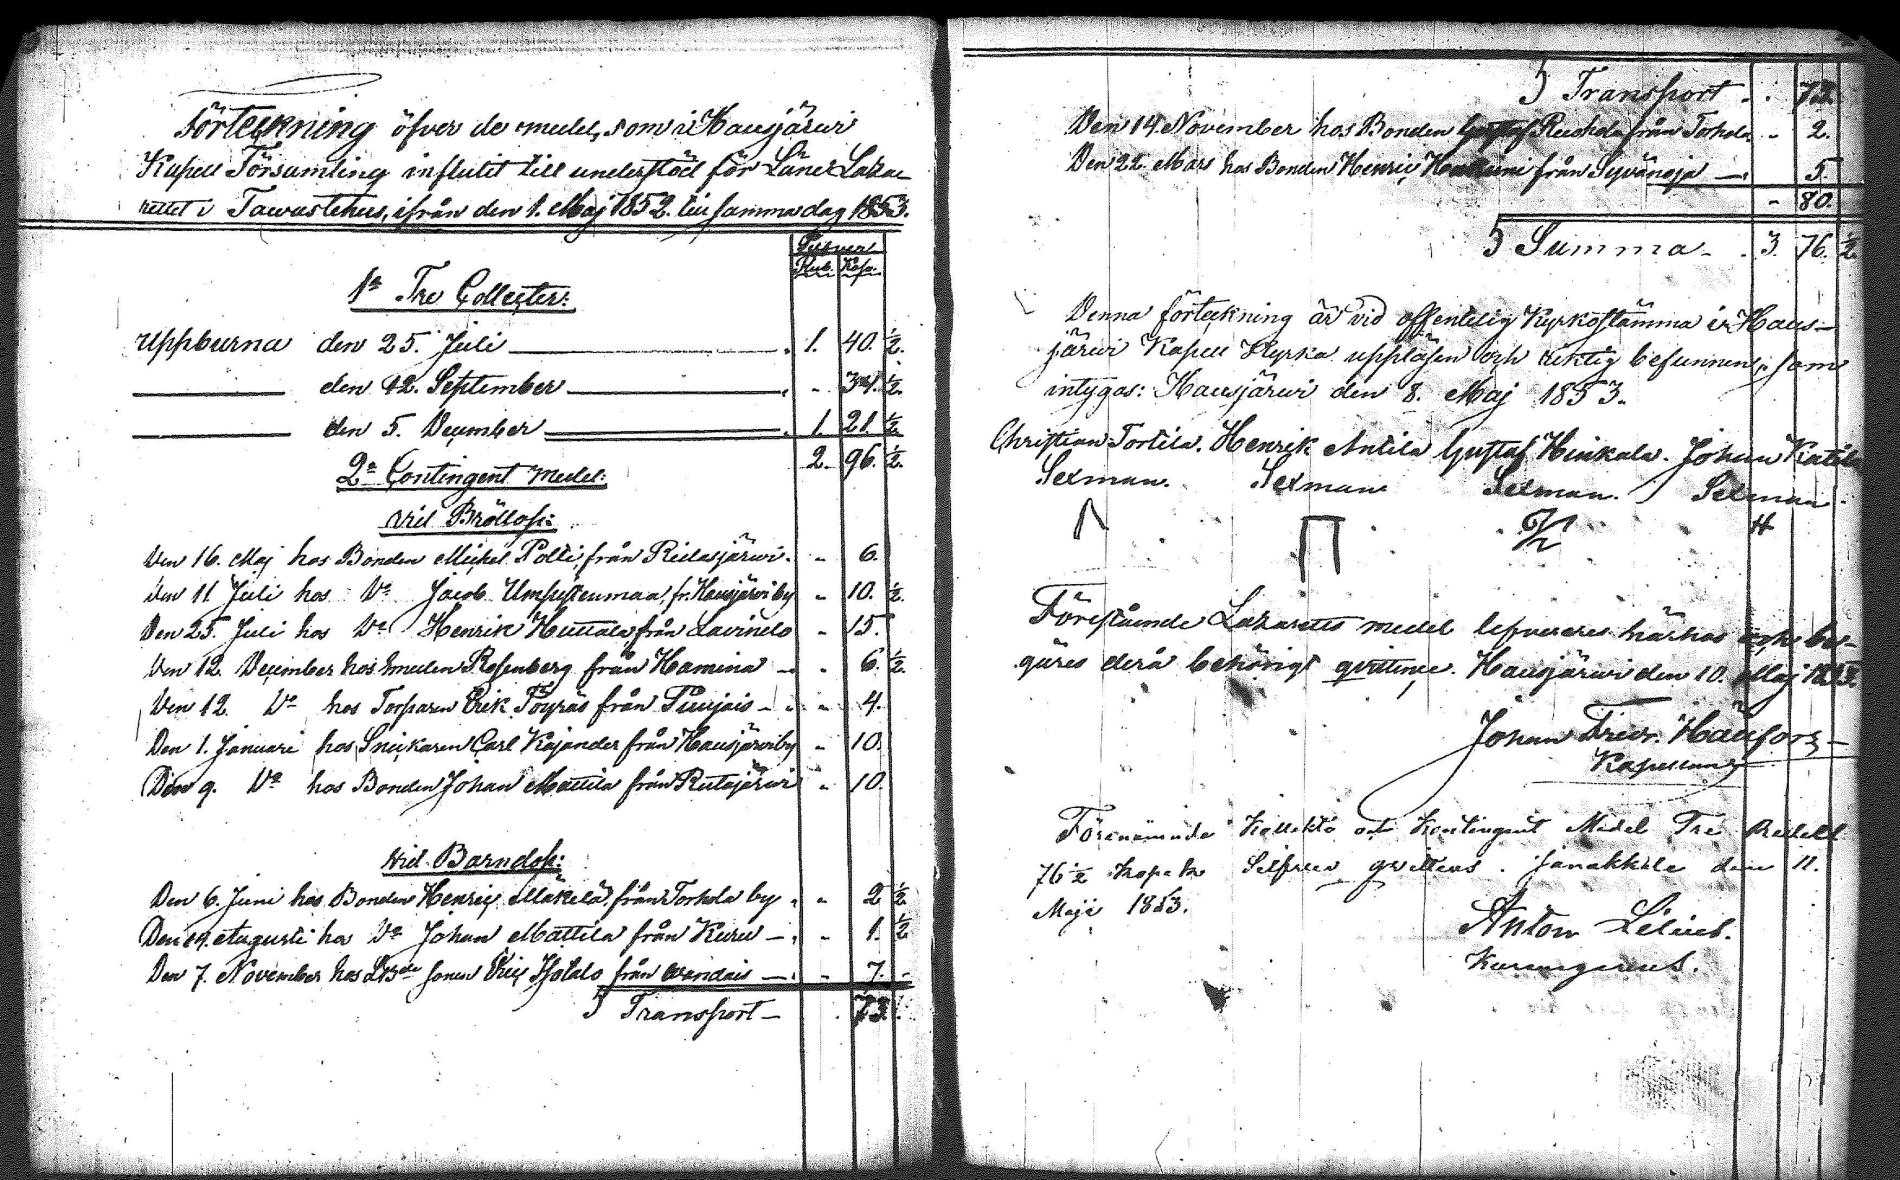 Förteckning öfver de medel, som i Hausjärwi
Kapell Församling influtit till understöd för Läns Laza-
rettet i Tawastehus, ifrån den 1. Maj 1852. till samma dag 1853.
Rub. Kop.
1º Tre Collecter:
Uppburna den 25. Juli 1. 40. ½.
den 12. September - 34. ½.
den 5. December 1. 21. ½
2. 96. ½.
2º Contingent Medel:
vid Bröllop:
Den 16. Maj hos Bonden Michel Polti från Ridasjärwi - 6.
Den 11 Juli hos Dº Jacob fr. Hausjärwi by - 10. ½.
Den 25. Juli hos Dº Henrik Huttala från - 15.
Den 12. December hos Smeden Rosenberg från Hamina - 6. ½
Den 12. Dº hos Torparen Erik Töyräs från Puujais - 4.
Den 1. Januari hos Snickaren Carl Kajander från Hausjärwi by - 10.
Den 9. Dº hos Bonden Johan Mattila från - 10.
vid Barndop:
Den 6. Juni hos Bonden Henric Mäkelä från Torhola by - 2 ½
Den 14. Augusti hos Dº Johan Mattila från Kuru - 1. ½
Den 7. November hos sonen Eric från - 7. -
Transport - 73.
Transport - 73.
Den 14. November hos Bonden Gustaf från Torhola - 2.
Den 22 Mars hos Bonden Henric från Syvänoja - 5.
- 80.
Summa - 3. 76. ½
Denna förteckning är vid offentelig Kyrkostämma i Haus-
järwi Kapell Kyrka uppläsen och riktig befunnen, som
intygas: Hausjärwi den 8. Maj 1853.
Christian Tortila. Henrik Antila Gustaf Hinkala. Johan Katila
Sexman. Sexman Sexman. Sexman.
Förestående Lazaretts medel lefvereres härhos och be-
gäres derå behörigt qvittence. Hausjärwi den 10. Maj 1853.
Johan Fredr.
Kapellan
Förenämnde Kollekt och Kontingent Medel Tre Rubel
76 ½ kopek Silfver qvitteras. Janakkala den 11.
Maji 1853.
Anton Lilius.